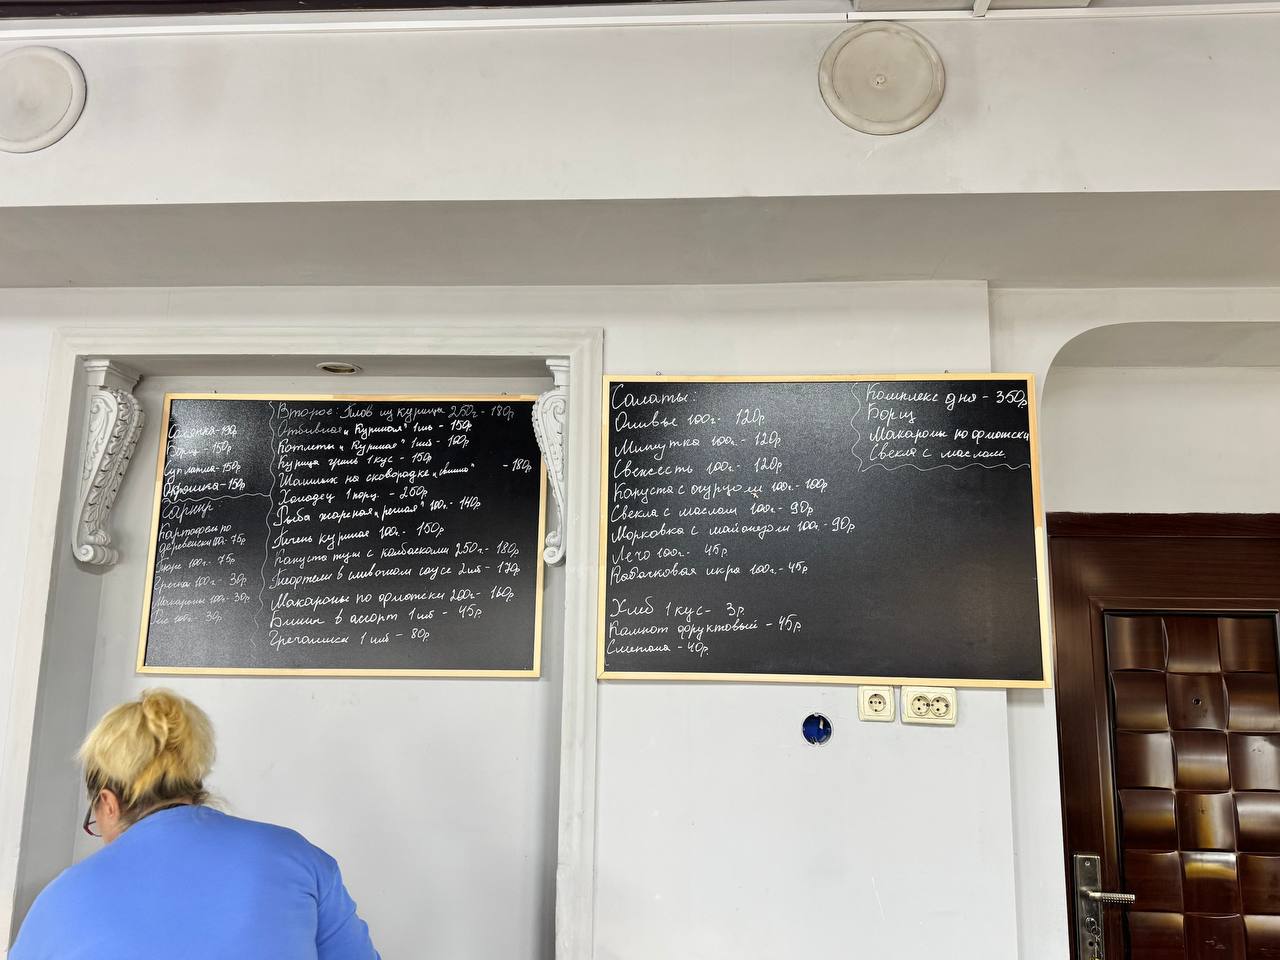 Солянка - 150р
Борщ - 150р
Суп лапша - 150р
Окрошка - 150р
Гарнир
Картофель по
деревенски 100г - 75р
Пюре 100г - 75р
Гречка 100г - 30р
Макароны 100г - 30р
Рис 100г - 30р
Второе: Плов из курицы 250г - 180р
Отбивная „Куриная" 1шт - 150р
Котлеты „Куриная" 1шт - 100р
Курица гриль 1 кус - 150р
Шашлык на сковородке - 180р
Холодец 1 порц. - 250р
Рыба жареная 100г. - 140р
Печень куриная 100г. - 150р
Капуста туш с колбасками 250г - 180р
Тефтели в сливочном соусе 2шт - 170р
Макароны по флотски 200г - 160р
Блины в ассорт 1 шт - 45р
Гречаники 1 шт - 80р
Салаты:
Оливье 100г. 120р
Мимутка 100г. - 120р
Свежесть 100г - 120р
Капуста с огурцом 100г - 100р
Свекла с маслом 100г - 90р
Морковка с майонезом 100г - 90р
Лечо 100г. 45р
Кабачковая икра 100г - 45р
Хлеб 1 кус - 3р.
Компот фруктовый - 45р
Сметана - 40р.
Комплекс дня - 350р
Борщ
Макароны по флотски
Свекла с маслом.